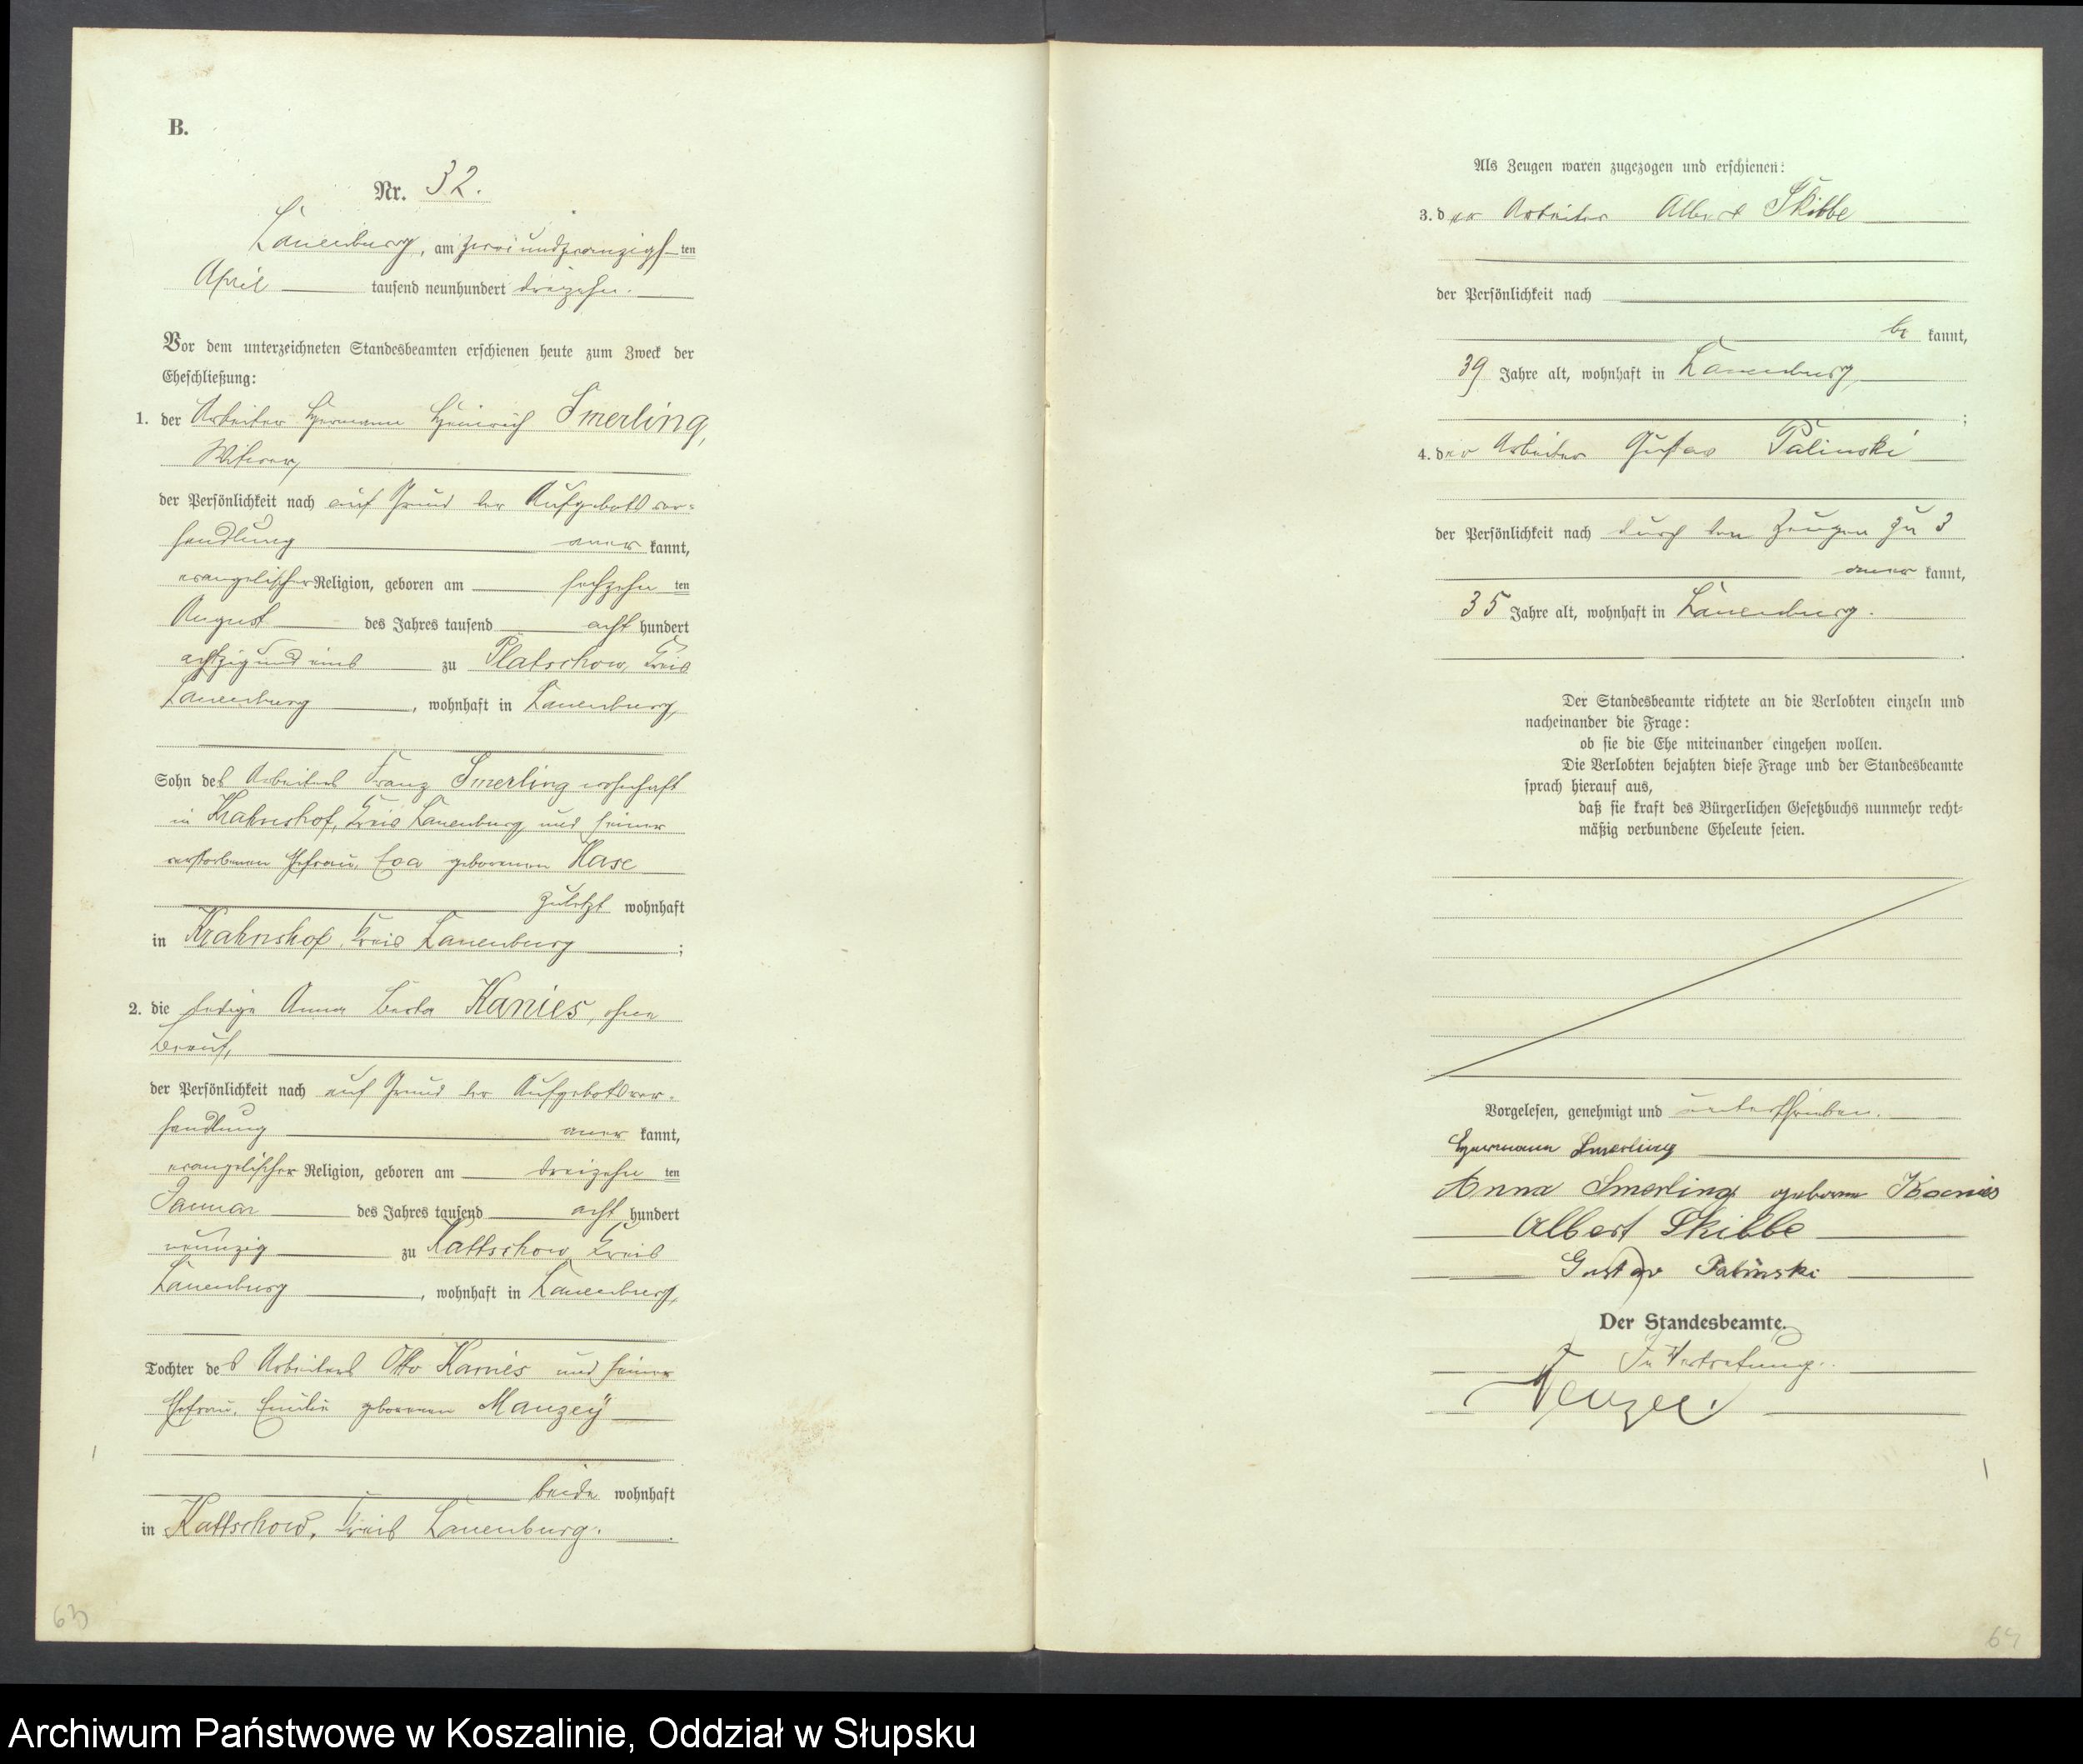 B.
Nr. 32.
Lauenburg, am zweiundzwanzigsten
April tausend neunhundert dreizehn.
Vor dem unterzeichneten Standesbeamten erschienen heute zum Zweck der
Eheschließung:
1. der Arbeiter Hermann Heinrich Smerling,
Witwer,
der Persönlichkeit nach auf Grund der Aufgebotsver-
handlung aner kannt,
evangelischer Religion, geboren am sechzehn ten
August des Jahres tausend acht hundert
achtzig und eins zu Platschow, Kreis
Lauenburg, wohnhaft in Lauenburg,
Sohn des Arbeiters Franz Smerling wohnhaft
in Krahnshof, Kreis Lauenburg und seiner
verstorbenen Ehefrau, Eva geborenen Hase
zuletzt wohnhaft
in Krahnshof, Kreis Lauenburg;
2. die ledige Anna Berta Kanies, ohne
Beruf,
der Persönlichkeit nach auf Grund der Aufgebotsver-
handlung aner kannt,
evangelischer Religion, geboren am dreizehn ten
Januar des Jahres tausend acht hundert
neunzig zu Kattschow, Kreis
Lauenburg, wohnhaft in Lauenburg,
Tochter des Arbeiters Otto Kanies und seiner
Ehefrau, Emilie geborenen Manzey
beide wohnhaft
in Kattschow, Kreis Lauenburg.
63
Als Zeugen waren zugezogen und erschienen:
3. der Arbeiter Albert Skibbe
der Persönlichkeit nach
be kannt,
39 Jahre alt, wohnhaft in Lauenburg
;
4. der Arbeiter Gustav Palinski
der Persönlichkeit nach durch den Zeugen zu 3
aner kannt,
35 Jahre alt, wohnhaft in Lauenburg.
Der Standesbeamte richtete an die Verlobten einzeln und
nacheinander die Frage:
ob sie die Ehe miteinander eingehen wollen.
Die Verlobten bejahten diese Frage und der Standesbeamte
sprach hierauf aus,
daß sie kraft des Bürgerlichen Gesetzbuchs nunmehr recht-
mäßig verbundene Eheleute seien.
Vorgelesen, genehmigt und unterschrieben.
Hermann Smerling
Anna Smerling geborene Kanies
Albert Skibbe
Gustav Palinski
Der Standesbeamte.
In Vertretung.
64
Archiwum Państwowe w Koszalinie, Oddział w Słupsku